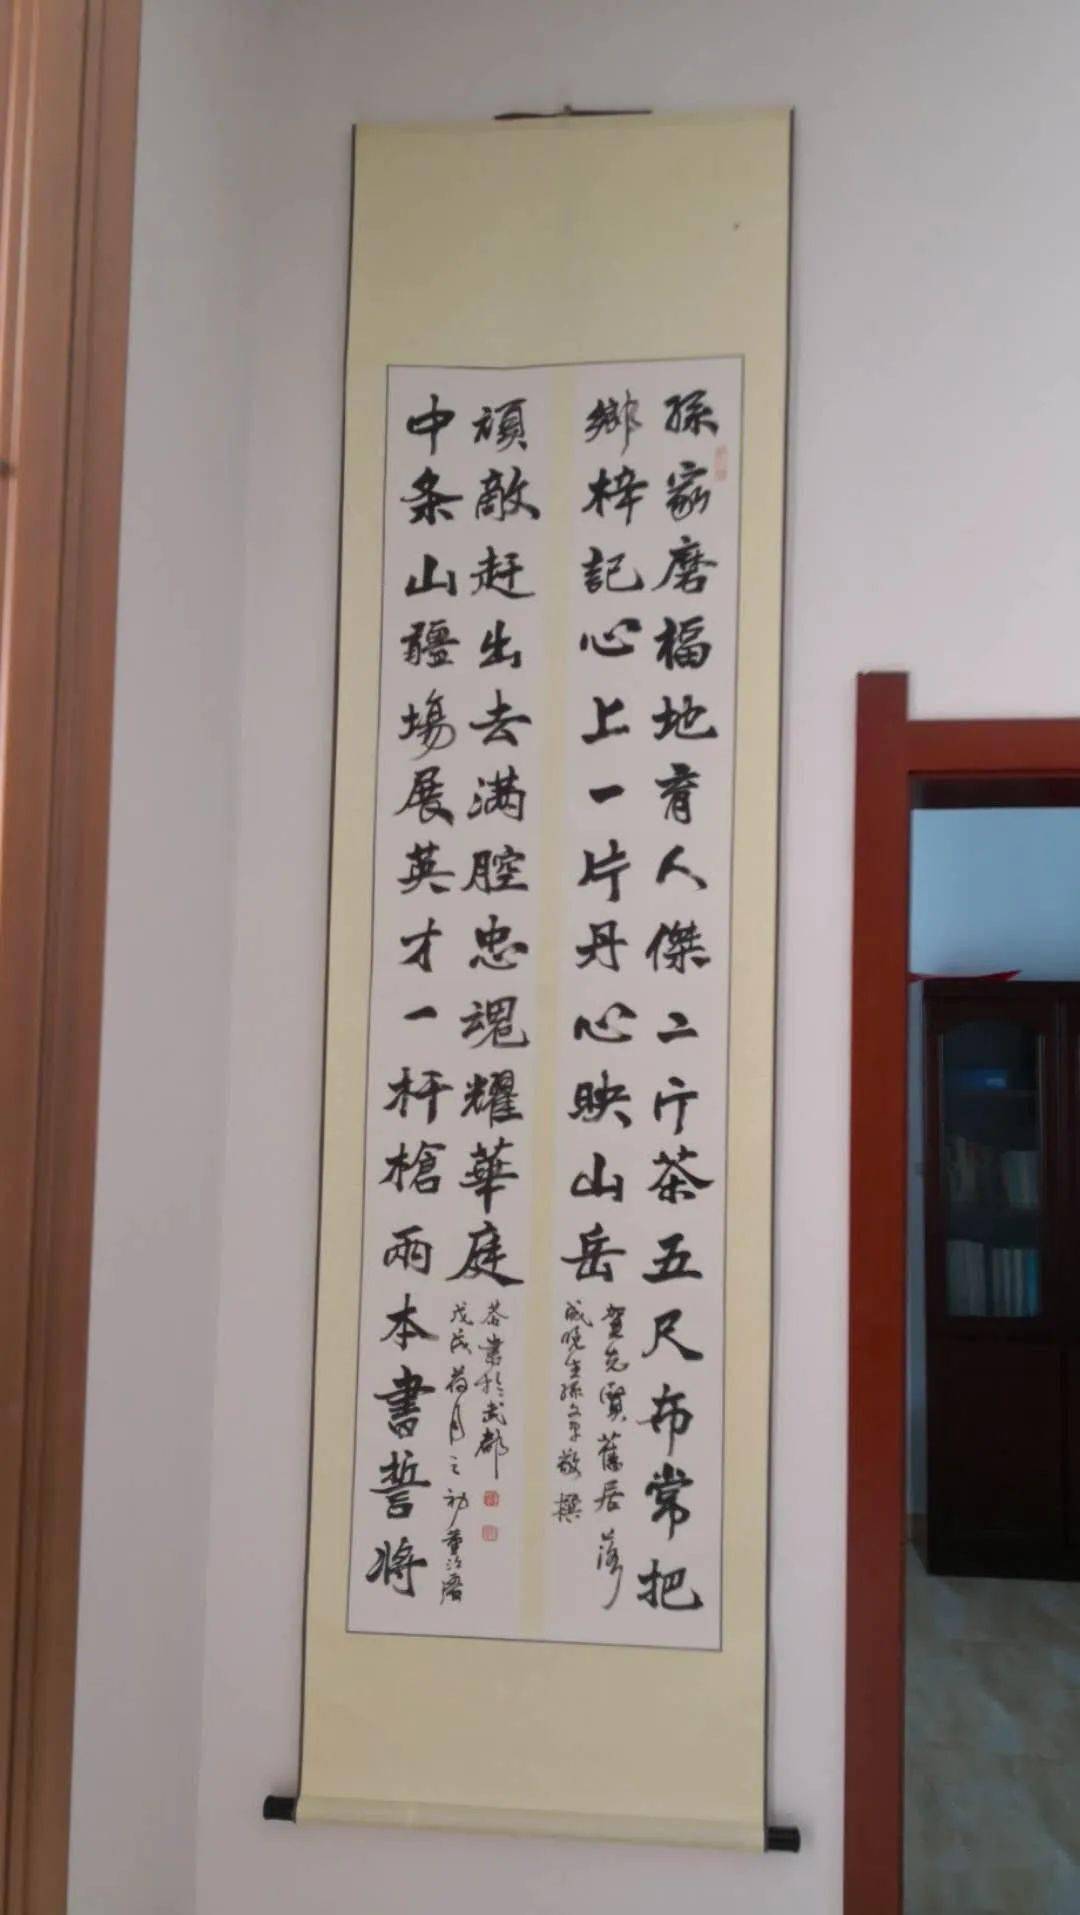 孫家磨福地育人傑二斤茶五尺布常把
鄉梓記心上一片丹心映山岳
賀先賢舊居落
成晚生孫文平敬撰
中条山疆場展英才一杆槍兩本書誓將
頑敵赶出去满腔忠魂耀華庭
戊戌荷月之初董
恭書於武都